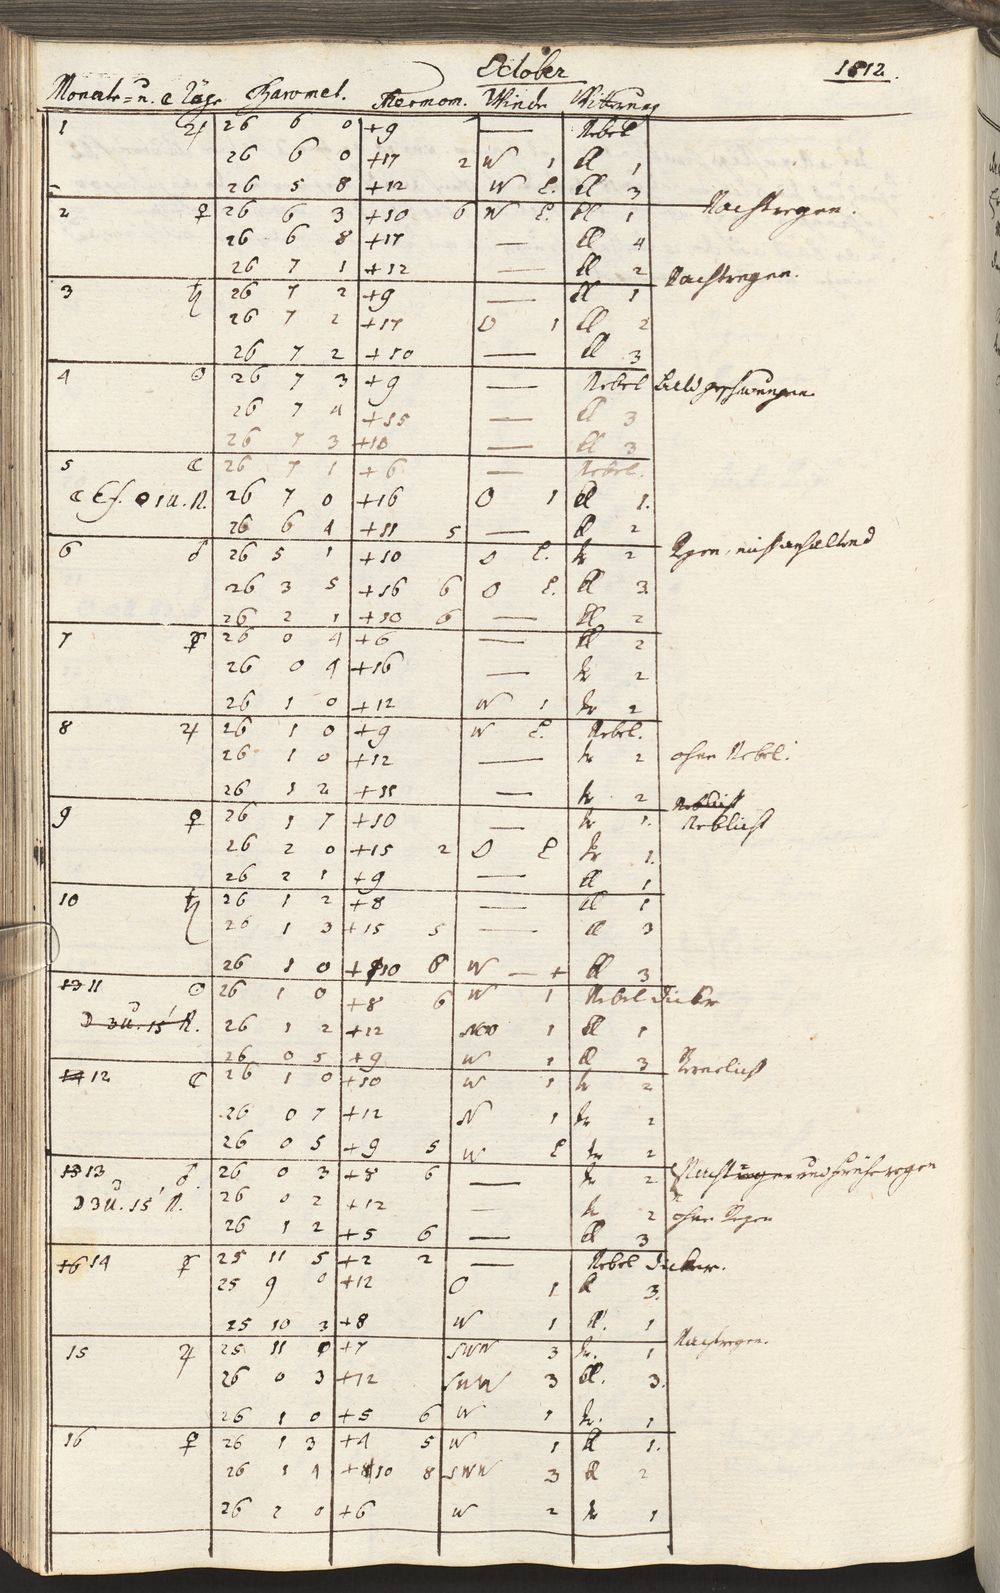 October 1812.
Monats= u. ☾ Täge Baromet. Thermom. Winde Witterung
1 ♃ 26 6 0 +9 — Nebel
26 6 0 +17 2 W 1 Cl 1
26 5 8 +12 W L. Cl 3
2 ♀ 26 6 3 +10 6 W L. Cl 1 Nachtregen.
26 6 8 +17 — Cl 4
26 7 1 +12 — Cl 2
3 ♄ 26 7 2 +9 — Cl 1 Nachtregen.
26 7 2 +17 O 1 Cl 2
26 7 2 +10 — Cl 3
4 ☉ 26 7 3 +9 — Nebel
26 7 4 +15 — Cl 3
26 7 3 +10 — Cl 3
5 ☾ 26 7 1 +6 — Nebel.
26 7 0 +16 O 1 Cl 1.
26 6 4 +11 5 — Cl 2
6 ♂ 26 5 1 +10 O L. tr 2 Regen nicht anhaltend
26 3 5 +16 6 O L. Cl 3
26 2 1 +10 6 — Cl 2
7 ☿ 26 0 4 +6 — Cl 2
26 0 4 +16 — tr 2
26 1 0 +12 W 1 tr 2
8 ♃ 26 1 0 +9 W L. Nebel.
26 1 0 +12 — tr 2 ohne Nebel.
26 1 2 +11 — tr 2
9 ♀ 26 1 7 +10 — tr 1. Neblicht
26 2 0 +15 2 O L tr 1.
26 2 1 +9 — Cl 1
10 ♄ 26 1 2 +8 — Cl 1
26 1 3 +15 5 — Cl 3
26 1 0 +10 8 W — + Cl 3
11 ☉ 26 1 0 +8 6 W 1 Nebel dicker
D 3 U. 15' N. 26 1 2 +12 NW 1 Cl 1
26 0 5 +9 W 1 Cl 3
12 ☾ 26 1 0 +10 W 1 tr 2
26 0 7 +12 N 1 tr 2
26 0 5 +9 5 W L tr 2
13 ♂ 26 0 3 +8 6 — tr 2
D 3 U. 15' N. 26 0 2 +12 — tr 2 ohne Regen
26 1 2 +5 6 — Cl 3
14 ☿ 25 11 5 +2 2 — Nebel dicker.
25 9 0 +12 O 1 Cl 3.
25 10 3 +8 W 1 1
15 ♃ 25 11 +7 SWW 3 tr. 1 Nachtregen.
26 0 3 +12 SWW 3 Cl. 3.
26 1 0 +5 6 W 1 tr. 1
16 ♀ 26 1 3 +4 5 W 1 Cl 1.
26 1 4 +10 8 SWW 3 Cl 2
26 2 0 +6 W 2 tr 1